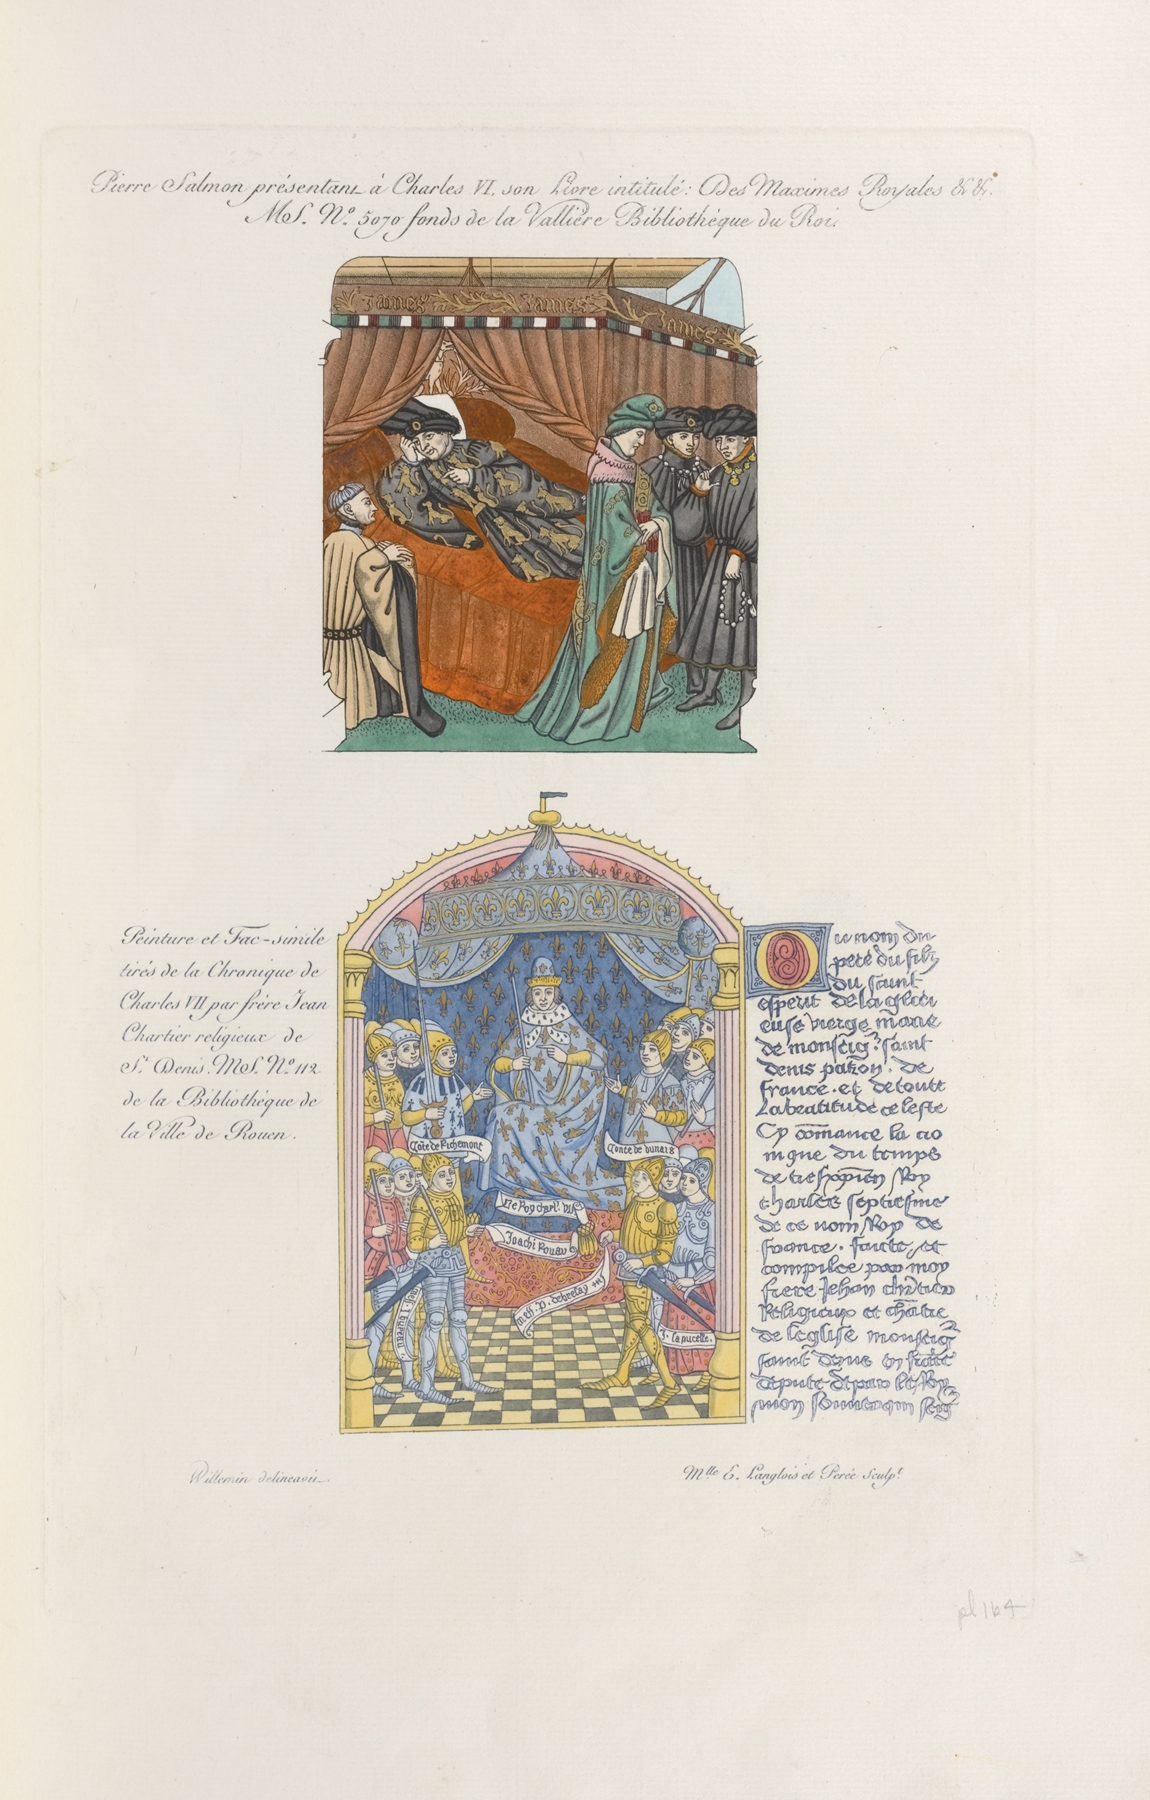 Pierre Salmon présentant à Charles VI, son Livre intitulé: Des Maximes Royales &c &c.
MS. Nº. 5070 fonds de la Vallière Bibliothèque du Roi.
James James James
Peinture et Fac-simile
tirés de la Chronique de
Charles VII par frère Jean
Chartier religieux de
St. Denis. MS. Nº. 112
de la Bibliothèque de
la Ville de Rouen.
Cõte de Richemont
Conte de dunois
le Roy charl. VII
Joachi Rouau
mess. p. de brezay
J. la pucelle.
u nom du
pere du filz
du saint
esperit de la glori
euse vierge marie
de monseigr. saint
denis patron. de
france. et de toute
La beatitude celeste
Cy cõmance la cro
nique du temps
de treshopiẽn Roy
charles septiesme
de ce nom Roy de
france. faicte, et
compilee par moy
frere Jehan chr̃tien
Religieux et chãtre
de leglise monseigr
saint denis
depute de par le Roy
mon souuerain seigr
Willemin delineavit
Mlle E. Langlois et Perée Sculpt.
pl 164